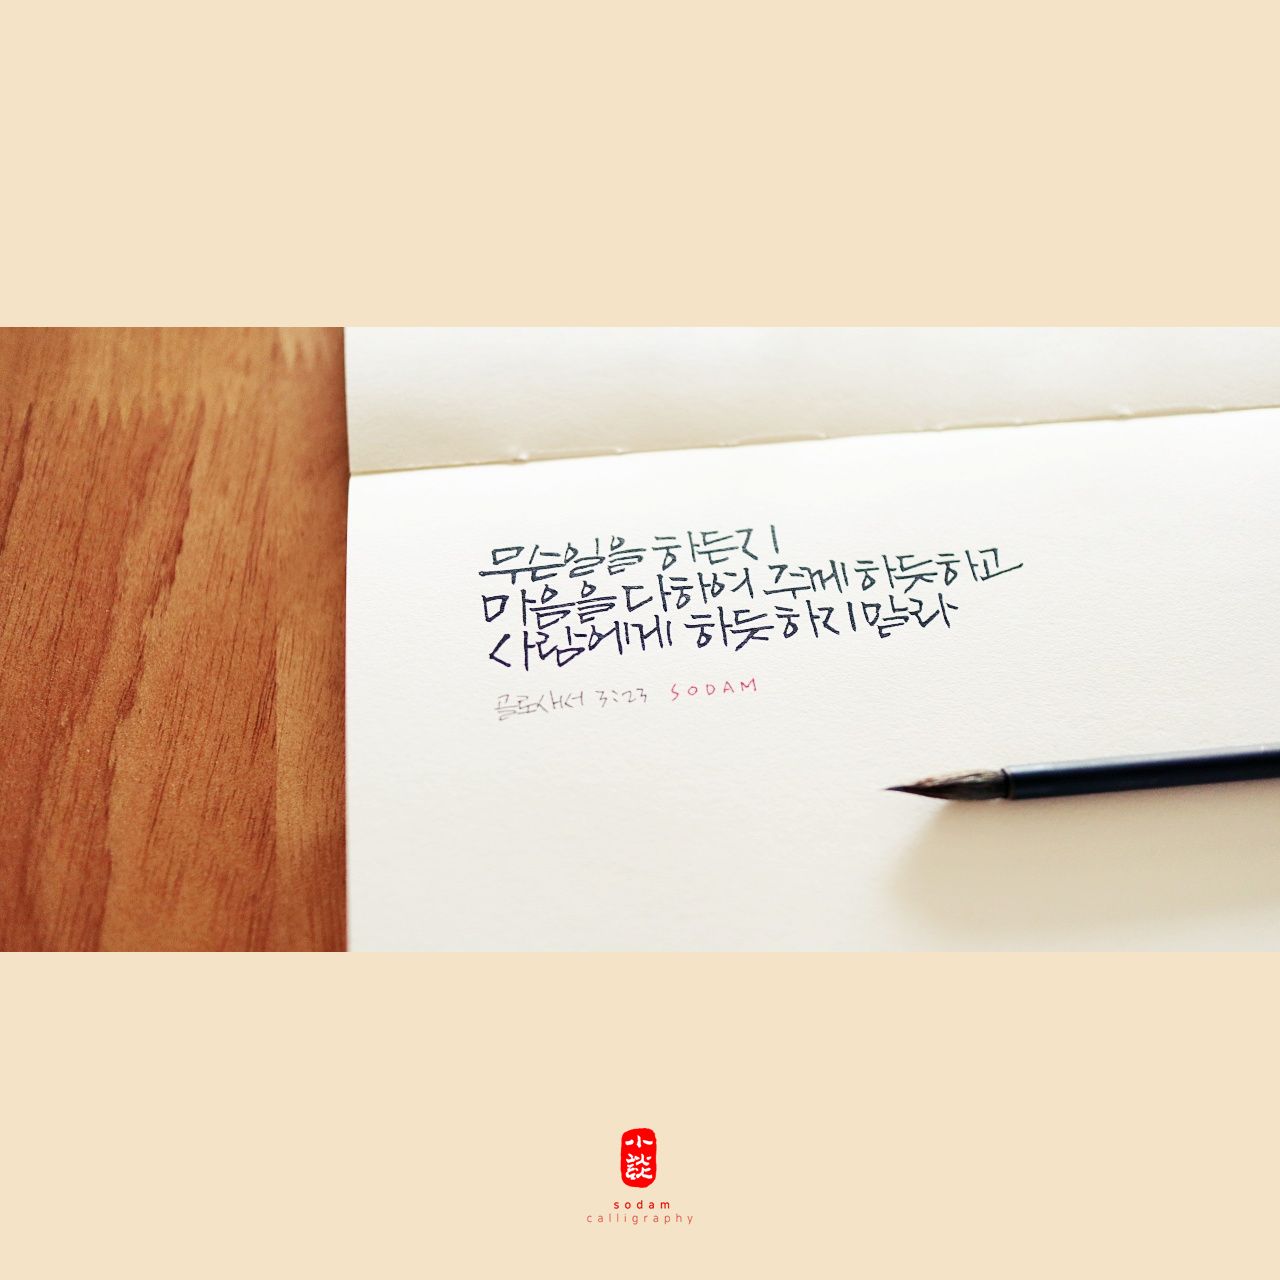 무슨일을 하든지
마음을 다하여 주께 하듯하고
사람에게 하듯하지말라
골로새서 3:23 SODAM
小談
sodam
calligraphy